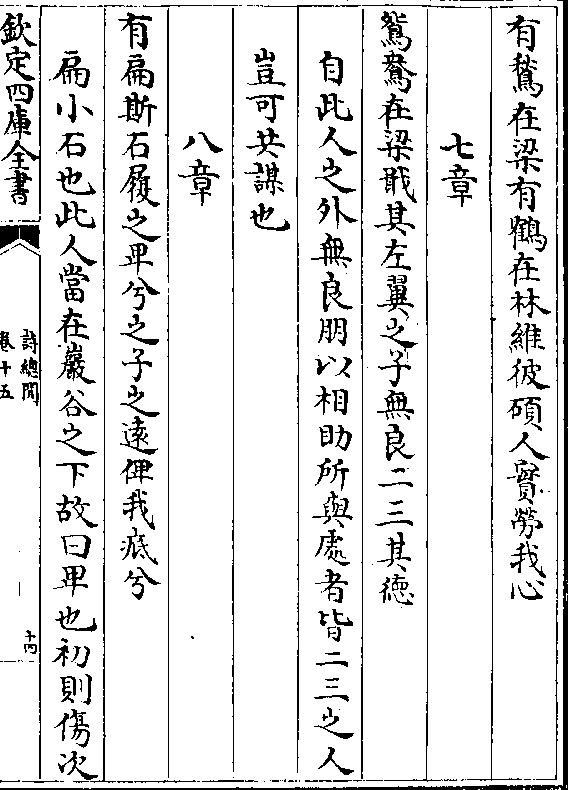 有鶖在梁有鶴在林維彼碩人實勞我心
七章
鴛鴦在梁戢其左翼之子無良二三其德
自此人之外無良朋以相助所與處者皆二三之人
豈可共謀也
八章
有扁斯石履之卑兮之子之遠俾我疷兮
扁小石也此人當在巖谷之下故曰卑也初則傷次
欽定四庫全書
詩總聞
卷十五
十四